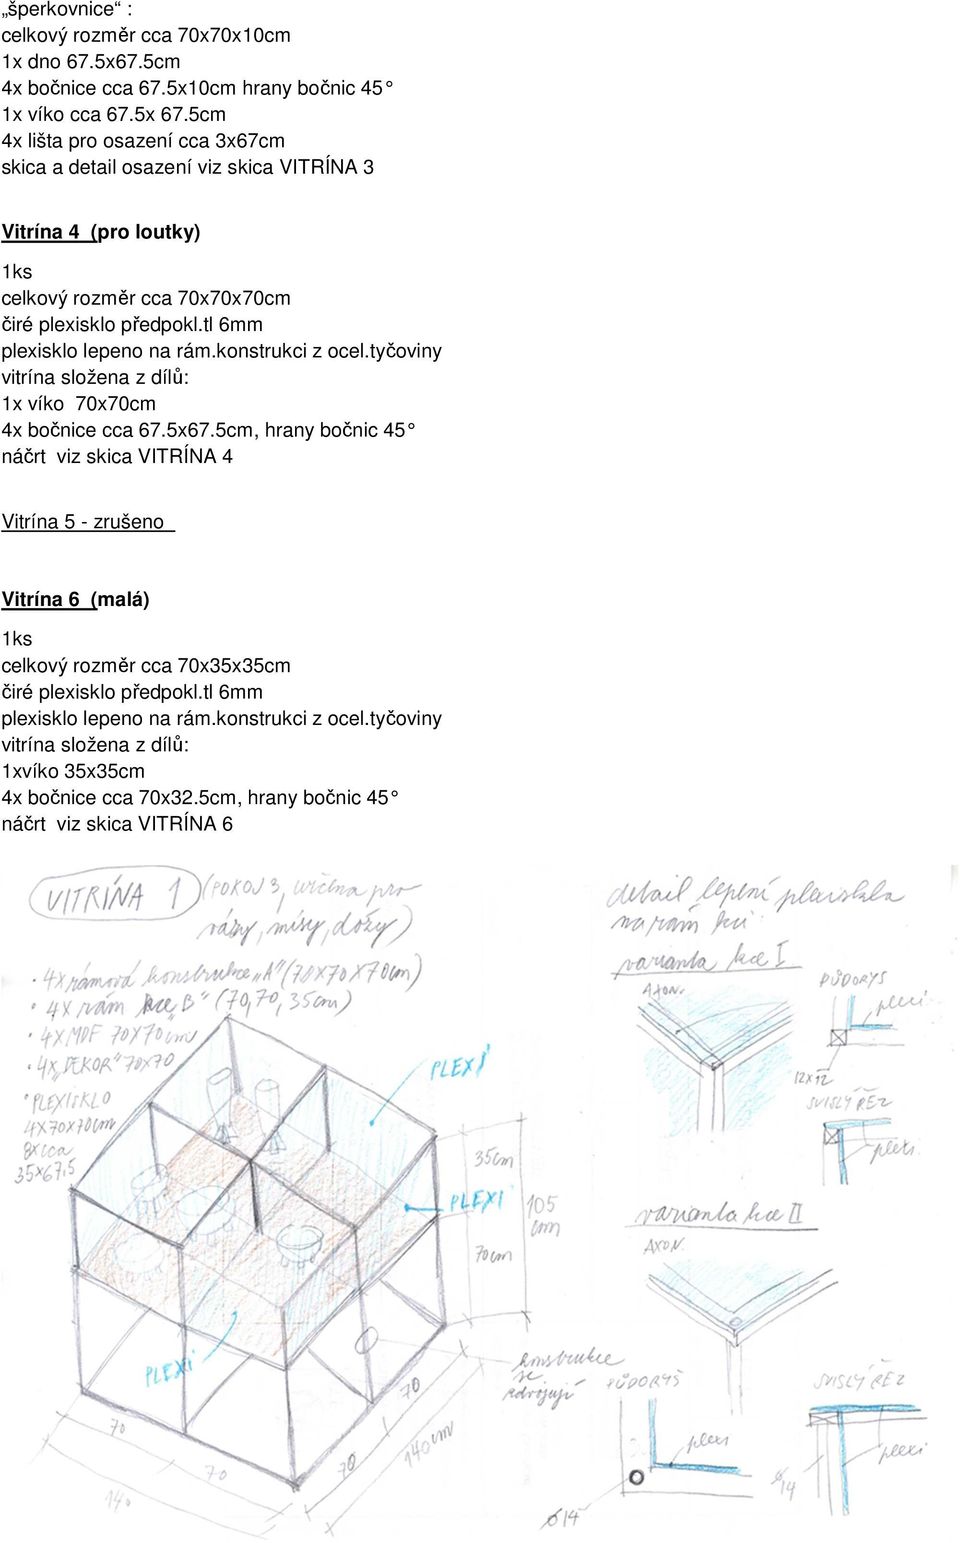 „šperkovnice“ :
celkový rozměr cca 70x70x10cm
1x dno 67.5x67.5cm
4x bočnice cca 67.5x10cm hrany bočnic 45°
1x víko cca 67.5x 67.5cm
4x lišta pro osazení cca 3x67cm
skica a detail osazení viz skica VITRÍNA 3
Vitrína 4 (pro loutky)
1ks
celkový rozměr cca 70x70x70cm
čiré plexisklo předpokl.tl 6mm
plexisklo lepeno na rám.konstrukci z ocel.tyčoviny
vitrína složena z dílů:
1x víko 70x70cm
4x bočnice cca 67.5x67.5cm, hrany bočnic 45°
náčrt viz skica VITRÍNA 4
Vitrína 5 - zrušeno
Vitrína 6 (malá)
1ks
celkový rozměr cca 70x35x35cm
čiré plexisklo předpokl.tl 6mm
plexisklo lepeno na rám.konstrukci z ocel.tyčoviny
vitrína složena z dílů:
1xvíko 35x35cm
4x bočnice cca 70x32.5cm, hrany bočnic 45°
náčrt viz skica VITRÍNA 6
VITRÍNA 1 (POKOJ 3, určena pro
vázy, mísy, dózy)
• 4x rámová konstrukce „A“ (70x70x70cm)
• 4x rám kce „B“ (70,70,35cm)
• 4x MDF 70x70cm
• 4x „DEKOR“ 70x70
• PLEXISKLO
4x70x70cm
8x cca
35x67,5
PLEXI
PLEXI
PLEXI
35cm
105
cm
70cm
konstrukce
se
zdvojují
70
70
140
70
70
140cm
detail lepení plexiskla
na rám kci:
varianta kce I
AXON.
PŮDORYS
plexi
12x12
SVISLÝ ŘEZ
plexi
varianta kce II
AXON.
PŮDORYS
plexi
ø14
SVISLÝ ŘEZ
plexi
ø14